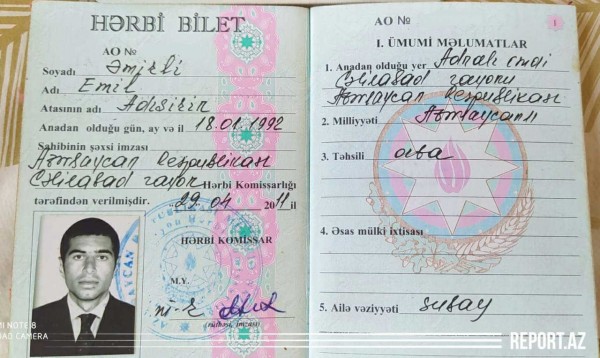 HƏRBİ BİLET
AO №
Soyadı Əmirli
Adı Emil
Atasının adı
Anadan olduğu gün, ay və il 18.01.1992
Sahibinin şəxsi imzası
Azərbaycan Respublikası
Cəlilabad rayon Hərbi Komissarlığı
tərəfindən verilmişdir. 29.04 2011 il
HƏRBİ KOMİSSAR
M.Y.
(rütbəsi, imzası)
MI NOTE 8
AD CAMERA
AO №
1
I. ÜMUMİ MƏLUMATLAR
1. Anadan olduğu yer Adnalı
Cəlilabad rayonu
Azərbaycan Respublikası
2. Milliyyəti Azərbaycanlı
3. Təhsili orta
4. Əsas mülki ixtisası
5. Ailə vəziyyəti subay
REPORT.AZ